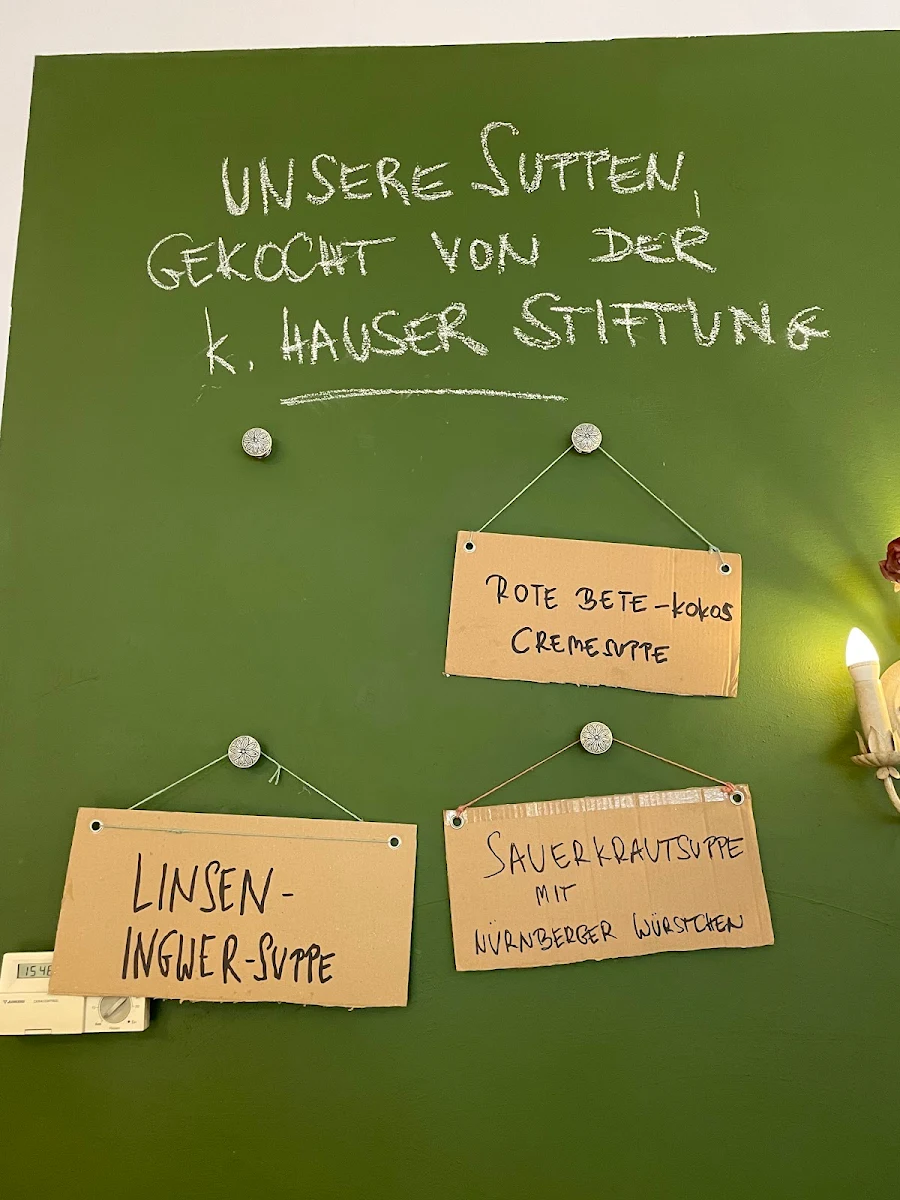 UNSERE SUPPEN,
GEKOCHT VON DER
K. HAUSER STIFTUNG
ROTE BETE-KOKOS
CREMESUPPE
LINSEN-
INGWER-SUPPE
SAUERKRAUTSUPPE
MIT
NÜRNBERGER WÜRSTCHEN